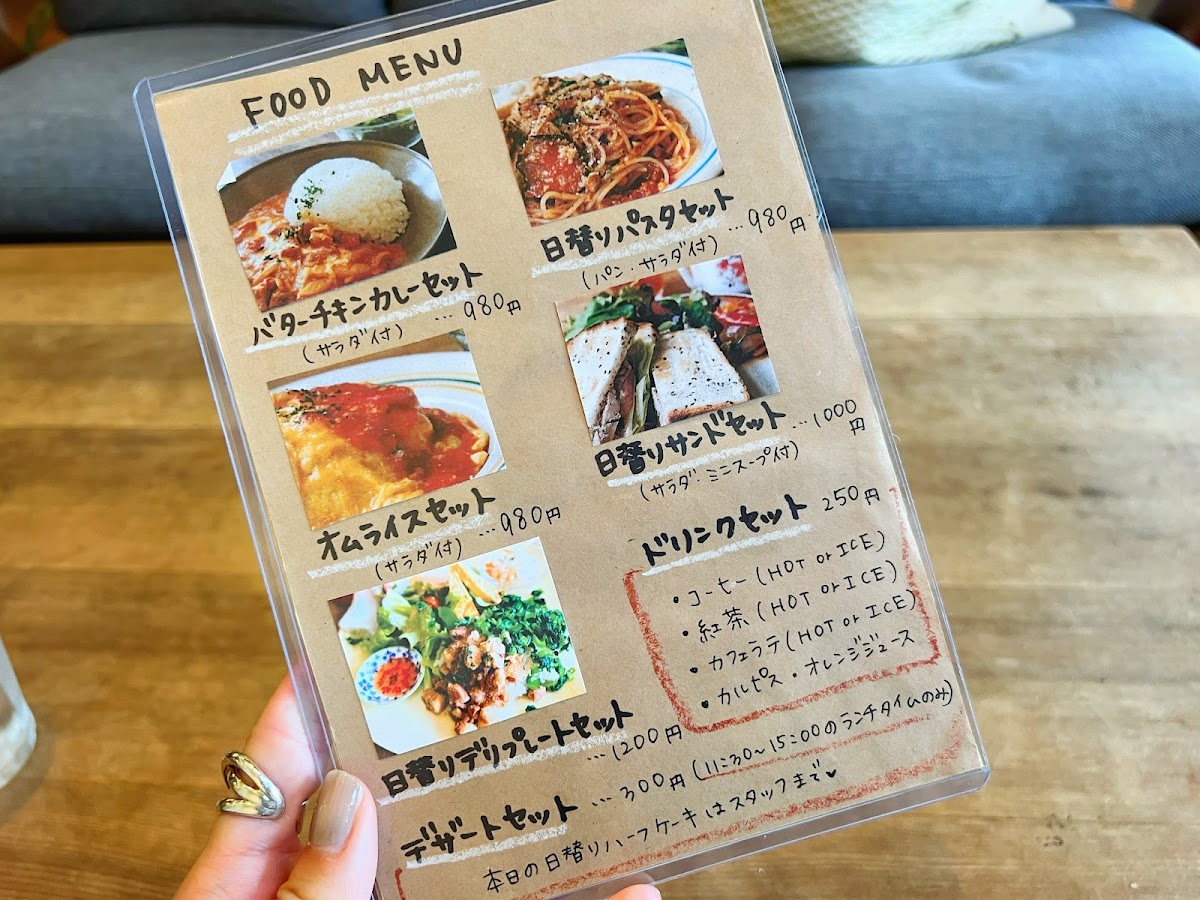 FOOD MENU
バターチキンカレーセット
(サラダ付) … 980円
日替りパスタセット … 980円
(パン・サラダ付)
オムライスセット … 980円
(サラダ付)
日替りサンドセット … 1000円
(サラダ・ミニスープ付)
日替りデリプレートセット
… 1200円
ドリンクセット 250円
・コーヒー (HOT or ICE)
・紅茶 (HOT or ICE)
・カフェラテ (HOT or ICE)
・カルピス・オレンジジュース
デザートセット … 300円 (11:30~15:00のランチタイムのみ)
本日の日替りハーフケーキはスタッフまで♥